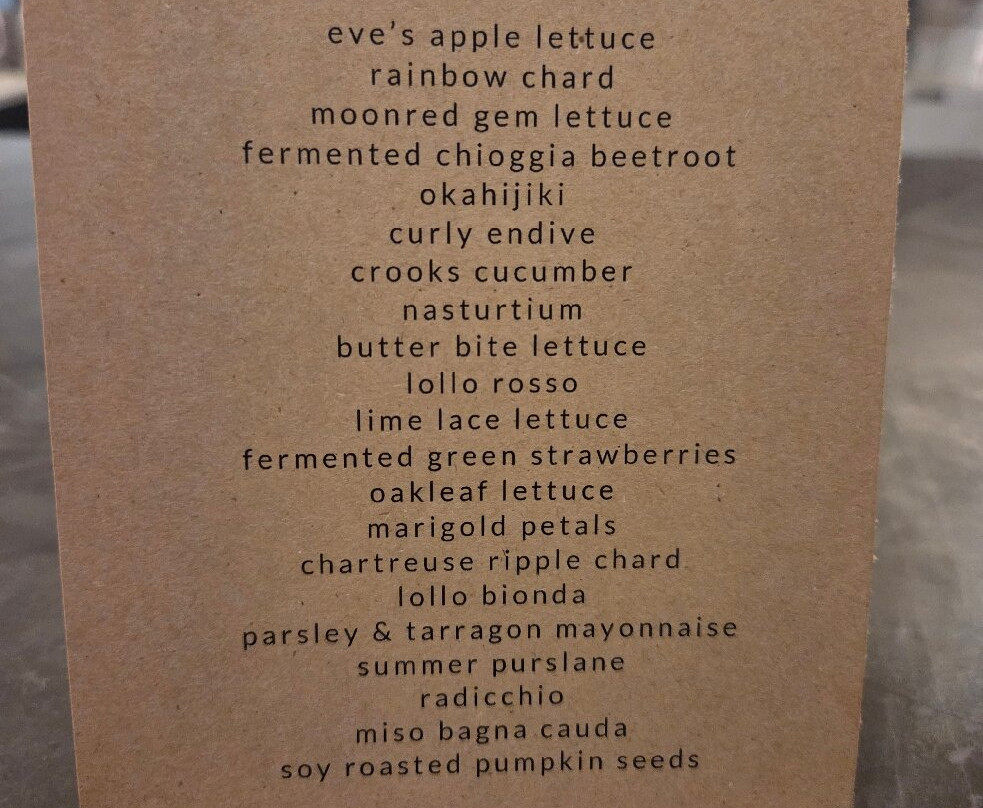 eve's apple lettuce
rainbow chard
moonred gem lettuce
fermented chioggia beetroot
okahijiki
curly endive
crooks cucumber
nasturtium
butter bite lettuce
lollo rosso
lime lace lettuce
fermented green strawberries
oakleaf lettuce
marigold petals
chartreuse ripple chard
lollo bionda
parsley & tarragon mayonnaise
summer purslane
radicchio
miso bagna cauda
soy roasted pumpkin seeds